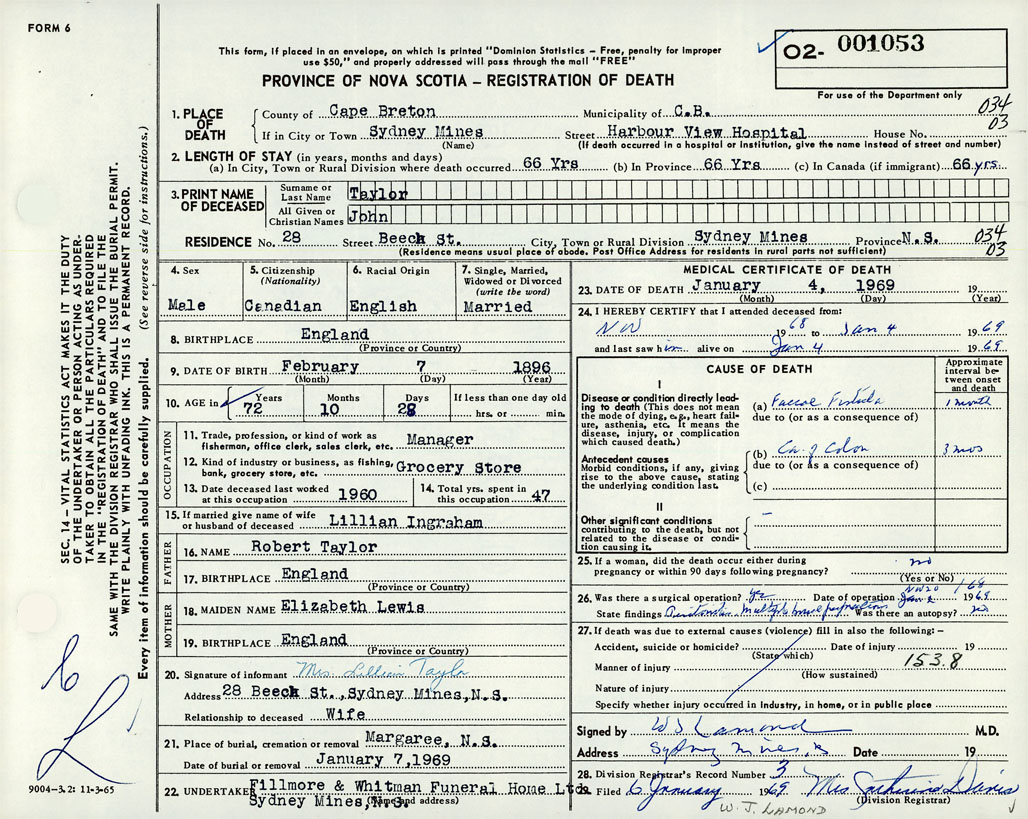 FORM 6
This form, if placed in an envelope, on which is printed "Dominion Statistics – Free, penalty for improper
use $50," and properly addressed will pass through the mail "FREE"
PROVINCE OF NOVA SCOTIA – REGISTRATION OF DEATH
✓ 02- 001053
For use of the Department only
034
03
1. PLACE OF DEATH
County of Cape Breton Municipality of C.B.
If in City or Town Sydney Mines Street Harbour View Hospital House No.
(Name) (If death occurred in a hospital or institution, give the name instead of street and number)
2. LENGTH OF STAY (in years, months and days)
(a) In City, Town or Rural Division where death occurred 66 Yrs (b) In Province 66 Yrs (c) In Canada (if immigrant) 66 yrs.
3. PRINT NAME OF DECEASED
Surname or Last Name Taylor
All Given or Christian Names John
RESIDENCE No. 28 Street Beech St. City, Town or Rural Division Sydney Mines Province N.S.
(Residence means usual place of abode. Post Office Address for residents in rural parts not sufficient)
034
03
4. Sex
Male
5. Citizenship
(Nationality)
Canadian
6. Racial Origin
English
7. Single, Married,
Widowed or Divorced
(write the word)
Married
8. BIRTHPLACE England
(Province or Country)
9. DATE OF BIRTH February 7 1896
(Month) (Day) (Year)
10. AGE in Years 72 Months 10 Days 28 If less than one day old
hrs. or min.
OCCUPATION
11. Trade, profession, or kind of work as
fisherman, office clerk, sales clerk, etc. Manager
12. Kind of industry or business, as fishing,
bank, grocery store, etc. Grocery Store
13. Date deceased last worked
at this occupation 1960
14. Total yrs. spent in
this occupation 47
15. If married give name of wife
or husband of deceased Lillian Ingraham
FATHER
16. NAME Robert Taylor
17. BIRTHPLACE England
(Province or Country)
MOTHER
18. MAIDEN NAME Elizabeth Lewis
19. BIRTHPLACE England
(Province or Country)
20. Signature of informant Mrs. Lillian Taylor
Address 28 Beech St., Sydney Mines, N.S.
Relationship to deceased Wife
21. Place of burial, cremation or removal Margaree, N.S.
Date of burial or removal January 7, 1969
22. UNDERTAKER Fillmore & Whitman Funeral Home Ltd.
Sydney Mines, N.S.
(Name and address)
MEDICAL CERTIFICATE OF DEATH
23. DATE OF DEATH January 4, 1969 19
(Month) (Day) (Year)
24. I HEREBY CERTIFY that I attended deceased from:
1968 to Jan 4 1969
and last saw him alive on Jan 4 1969
CAUSE OF DEATH
Approximate
interval be-
tween onset
and death
I
Disease or condition directly lead-
ing to death (This does not mean
the mode of dying, e.g., heart fail-
ure, asthenia, etc. It means the
disease, injury, or complication
which caused death.)
(a) Faecal Fistula 1 month
due to (or as a consequence of)
Antecedent causes
Morbid conditions, if any, giving
rise to the above cause, stating
the underlying condition last.
(b) Ca. of Colon 3 mos
due to (or as a consequence of)
(c)
II
Other significant conditions
contributing to the death, but not
related to the disease or condi-
tion causing it.
–
25. If a woman, did the death occur either during
pregnancy or within 90 days following pregnancy? no
(Yes or No)
26. Was there a surgical operation? yes Date of operation Jan 2 1969
State findings Peritonitis multiple bowel perforations Was there an autopsy? no
27. If death was due to external causes (violence) fill in also the following: –
Accident, suicide or homicide? Date of injury 19
(State which)
Manner of injury 153.8
(How sustained)
Nature of injury
Specify whether injury occurred in industry, in home, or in public place
Signed by W S Lamond M.D.
Address Sydney Mines, Date 19
28. Division Registrar's Record Number 3
Filed 6 January 1969
(Division Registrar)
W. J. LAMOND
SEC. 14 – VITAL STATISTICS ACT MAKES IT THE DUTY
OF THE UNDERTAKER OR PERSON ACTING AS UNDER-
TAKER TO OBTAIN ALL THE PARTICULARS REQUIRED
IN THE "REGISTRATION OF DEATH" AND TO FILE THE
SAME WITH THE DIVISION REGISTRAR WHO SHALL ISSUE THE BURIAL PERMIT.
WRITE PLAINLY WITH UNFADING INK. THIS IS A PERMANENT RECORD.
Every item of information should be carefully supplied. (See reverse side for instructions.)
9004-3.2: 11-3-65